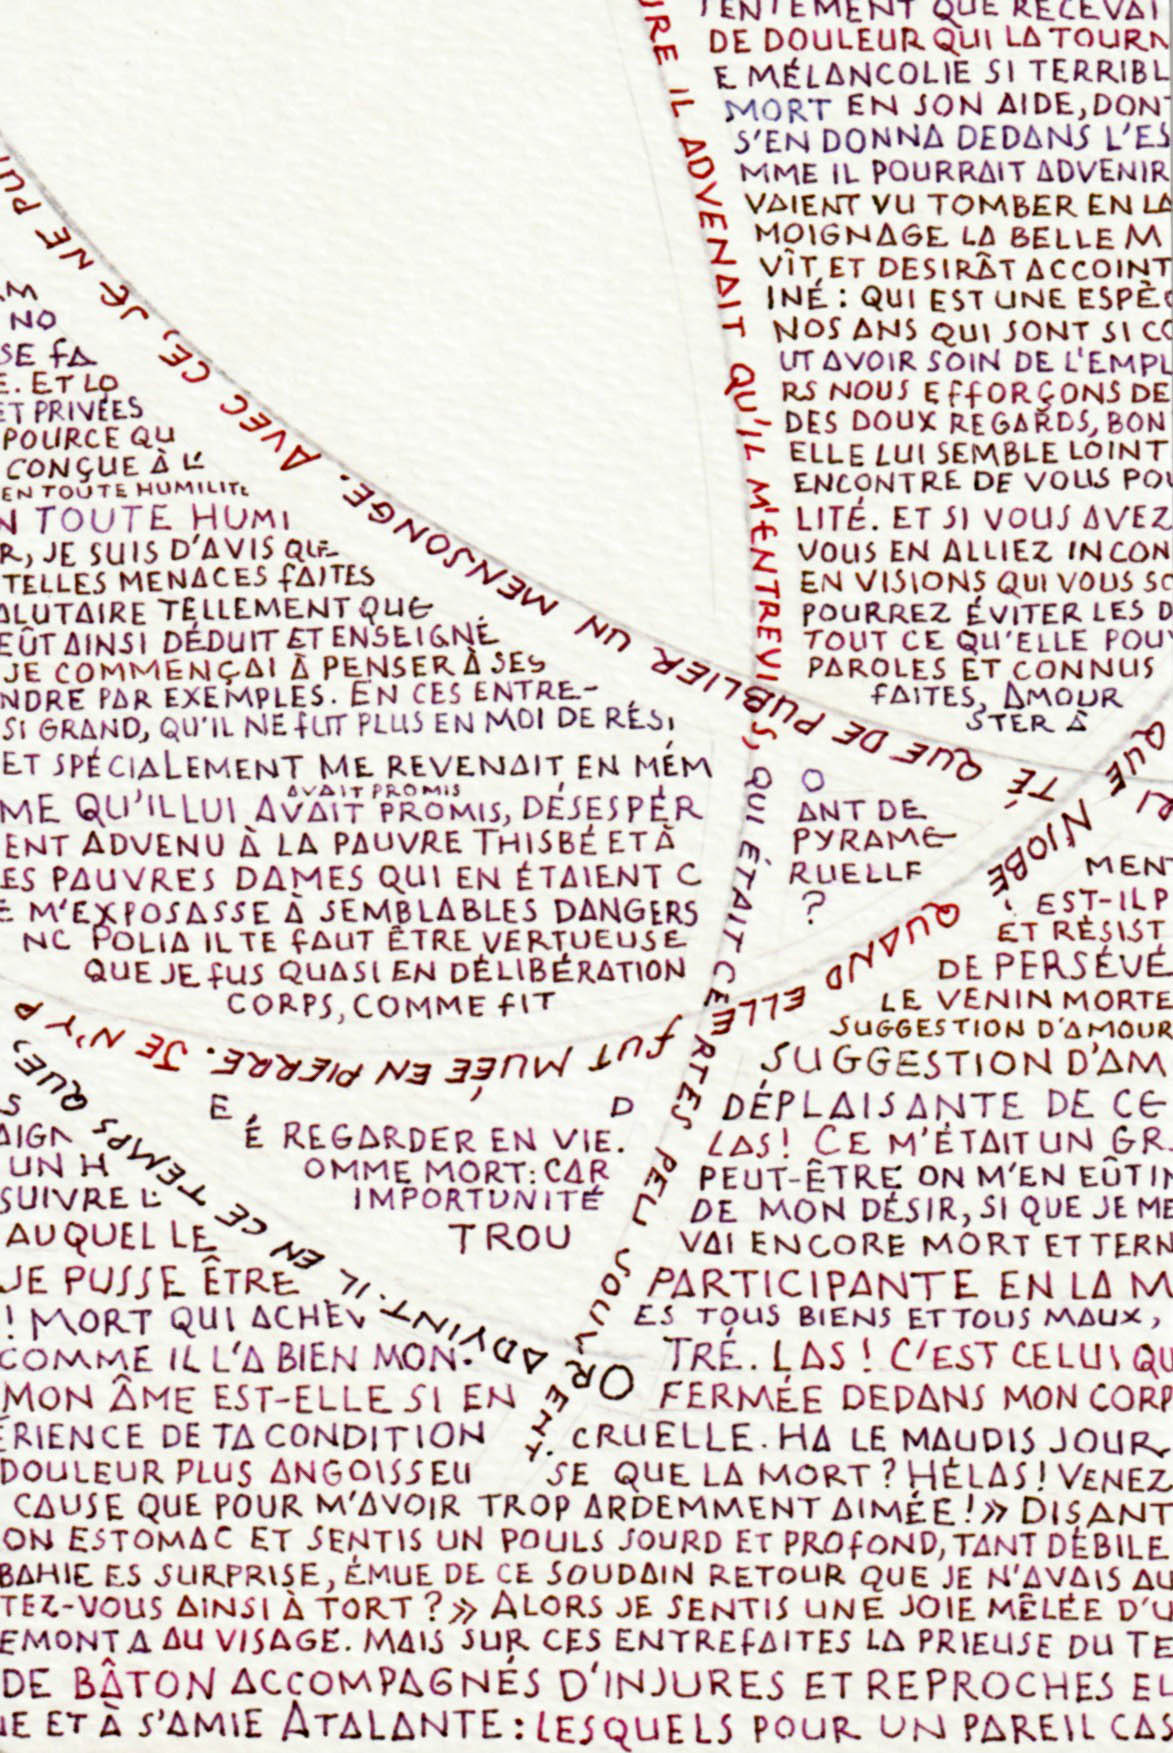 TENTEMENT QUE RECEVAI
DE DOULEUR QUI LA TOURN
E MÉLANCOLIE SI TERRIBL
MORT EN SON AIDE, DONT
S'EN DONNA DEDANS L'ES
MME IL POURRAIT ADVENIR
VAIENT VU TOMBER EN LA
MOIGNAGE LA BELLE M
VÎT ET DESIRÂT ACCOINT
INÉ : QUI EST UNE ESPÈC
NOS ANS QUI SONT SI CO
UT AVOIR SOIN DE L'EMPL
RS NOUS EFFORÇONS DE
DES DOUX REGARDS, BON
ELLE LUI SEMBLE LOINT
ENCONTRE DE VOUS POU
LITÉ. ET SI VOUS AVEZ
VOUS EN ALLIEZ INCON
EN VISIONS QUI VOUS SO
POURREZ ÉVITER LES D
TOUT CE QU'ELLE POU
PAROLES ET CONNUS
FAITES, AMOUR
STER À
URE IL ADVENAIT QU'IL M'ENTREVIS, QUI ÉTAIT CERTES PEU SOUVENT.
QUE TÉ QUE DE PUBLIER UN MENSONGE. AVEC CE, JE NE PUI
NO
SE FA
E. ET LO
ET PRIVÉES
POURCE QU
CONÇUE À L'
EN TOUTE HUMILITÉ
N TOUTE HUMI
R, JE SUIS D'AVIS QUE
TELLES MENACES FAITES
ALUTAIRE TELLEMENT QUE
EÛT AINSI DÉDUIT ET ENSEIGNÉ
JE COMMENÇAI À PENSER À SES
NDRE PAR EXEMPLES. EN CES ENTRE-
SI GRAND, QU'IL NE FUT PLUS EN MOI DE RÉSI
ET SPÉCIALEMENT ME REVENAIT EN MÉM
AVAIT PROMIS
ME QU'IL LUI AVAIT PROMIS, DÉSESPÉR
ENT ADVENU À LA PAUVRE THISBÉ ET À
ES PAUVRES DAMES QUI EN ÉTAIENT C
E M'EXPOSASSE À SEMBLABLES DANGERS
NC POLIA IL TE FAUT ÊTRE VERTUEUSE
QUE JE FUS QUASI EN DÉLIBÉRATION
CORPS, COMME FIT
O
ANT DE
PYRAME
RUELLE
?
QUE NIOBÉ QUAND ELLE FUT MUÉE EN PIERRE. JE N'Y P
MEN
! EST-IL P
ET RÉSIST
DE PERSÉVÉ
LE VENIN MORTE
SUGGESTION D'AMOUR
SUGGESTION D'AM
DÉPLAISANTE DE CE
LAS ! CE M'ÉTAIT UN GR
PEUT-ÊTRE ON M'EN EÛT IN
DE MON DÉSIR, SI QUE JE ME
VAI ENCORE MORT ET TERN
PARTICIPANTE EN LA M
ES TOUS BIENS ET TOUS MAUX,
TRÉ. LAS ! C'EST CELUI QU
FERMÉE DEDANS MON CORP
CRUELLE. HA LE MAUDIS JOUR
E, D
É REGARDER EN VIE.
OMME MORT : CAR
IMPORTUNITÉ
TROU
OR ADVINT-IL EN CE TEMPS QUE,
S
AIGN
UN H
SUIVRE L
AUQUEL LE
JE PUSSE ÊTRE
! MORT QUI ACHEV
COMME IL L'A BIEN MON-
MON ÂME EST-ELLE SI EN
ÉRIENCE DE TA CONDITION
DOULEUR PLUS ANGOISSEU SE QUE LA MORT ? HÉLAS ! VENEZ
CAUSE QUE POUR M'AVOIR TROP ARDEMMENT AIMÉE ! » DISANT
ON ESTOMAC ET SENTIS UN POULS SOURD ET PROFOND, TANT DÉBILE
BAHIE ES SURPRISE, ÉMUE DE CE SOUDAIN RETOUR QUE JE N'AVAIS AU
TEZ-VOUS AINSI À TORT ? » ALORS JE SENTIS UNE JOIE MÊLÉE D'U
EMONTA AU VISAGE. MAIS SUR CES ENTREFAITES LA PRIEUSE DU TE
DE BÂTON ACCOMPAGNÉS D'INJURES ET REPROCHES EU
IE ET À S'AMIE ATALANTE : LESQUELS POUR UN PAREIL CAS